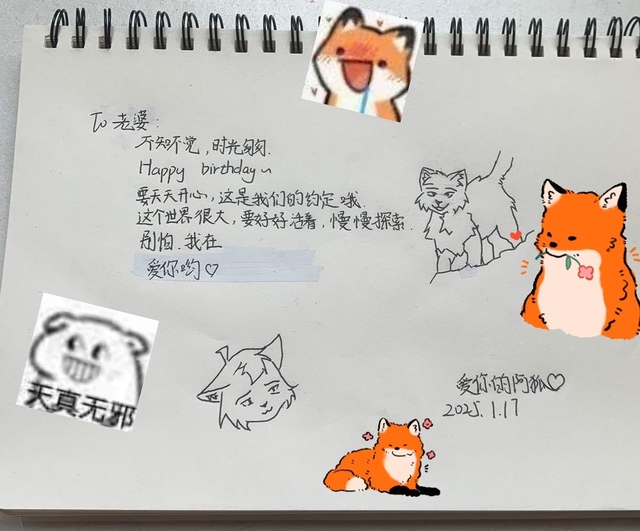 To 老婆:
不知不觉,时光匆匆.
Happy birthday~
要天天开心,这是我们的约定哦.
这个世界很大,要好好活着,慢慢探索.
别怕.我在
爱你哟♡
天真无邪
爱你的阿狐♡
2025.1.17